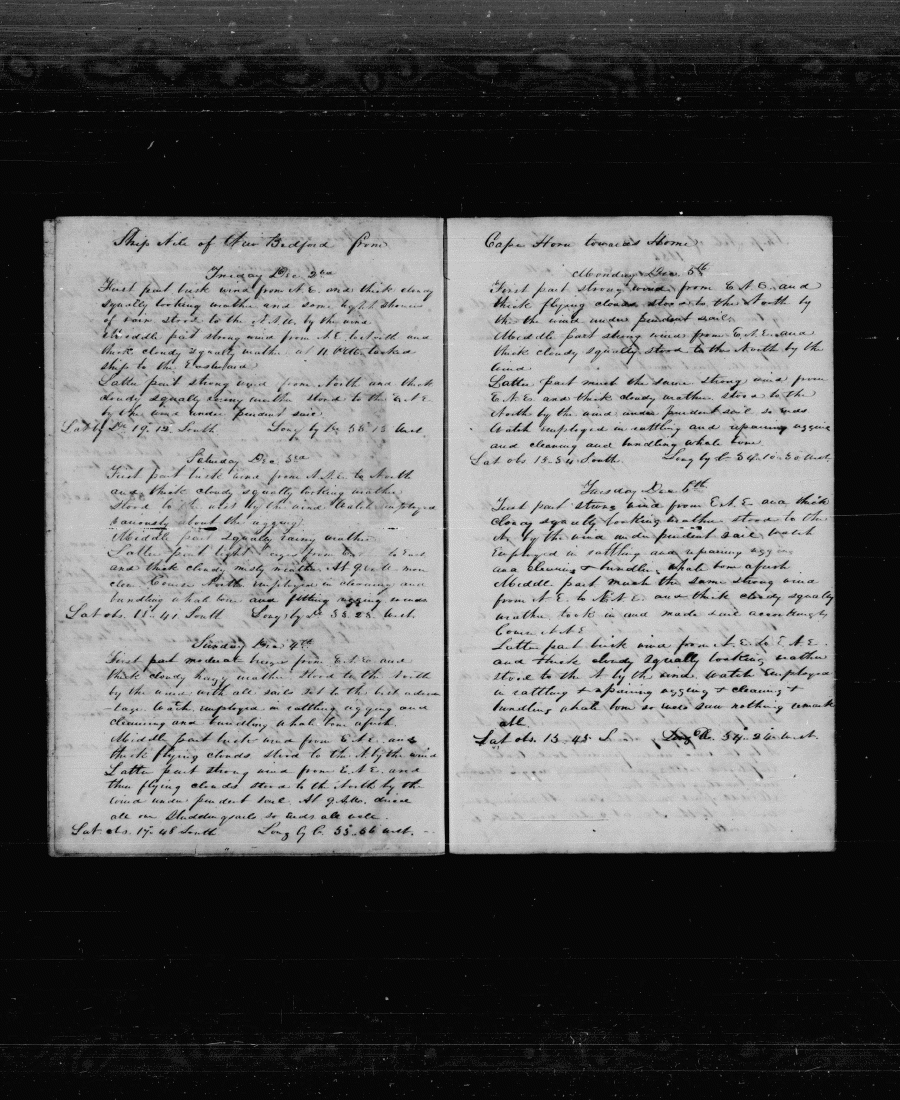 Ship Nile of New Bedford from
Friday Dec 2nd
First part brisk wind from N.E. and thick cloudy
squally looking weather and some light showers
of rain stood to the by the wind
Middle part strong wind from N.E. to North and
thick cloudy squally weather at 11 tacked
ship to the Eastward
Latter part strong wind from North and thick
cloudy squally rainy weather stood to the E.N.E.
by the wind under prudent sail
Lat by 19.12 South Long by 36 13 West.
Saturday Dec 3rd
First part brisk wind from N.N.E. to North
and thick cloudy squally looking weather
stood to by the wind Watch employed
variously about the rigging
Middle part squally rainy weather
Latter part light from to East
and thick cloudy misty weather At 9
Course North employed in cleaning and
bundling whale bone and fitting rigging so ends
Lat obs. 18.. 41 South Long by West.
Sunday Dec 4th
First part moderate breeze from E.N.E. and
thick cloudy hazy weather stood to the North
by the wind with all sails set to the best advan
-tage Watch employed in rattling rigging and
cleaning and bundling whale bone afresh
Middle part brisk wind from E.N.E. and
thick flying clouds stood to the N by the wind
Latter part strong wind from E.N.E. and
thin flying clouds stood to the North by the
wind under prudent sail At 9 A.M.
all our Studdingsails so ends all well.
Lat obs. 17.. 48 South Long by C. 35.. 56 West.
Cape Horn towards Home
Monday Dec. 5th
First part strong wind from E.N.E. and
thick flying clouds stood to the North by
the the wind under prudent sail
Middle part strong wind from E.N.E. and
thick cloudy squally stood to the North by the
wind
Latter part much the same strong wind from
E.N.E. and thick cloudy weather stood to the
North by the wind under prudent sail so ends
Watch employed in rattling and repairing rigging
and cleaning and bundling whale bone
Lat obs 15.. 54 South. Long by C. 34.. 10.. 30 West.
Tuesday Dec 6th
First part strong wind from E.N.E. and thick
cloudy squally looking weather stood to the
N. by the wind under prudent sail watch
Employed in rattling and repairing rigging
and cleaning + bundling whale bone afresh
Middle part much the same strong wind
from N.E. to E.N.E. and thick cloudy squally
weather took in and made sail accordingly
Course N.N.E.
Latter part brisk wind from N.E. to E.N.E.
and thick cloudy squally looking weather
stood to the N by the wind watch Employed
in rattling + repairing rigging + cleaning +
bundling whale bone so ends saw nothing remark
able
Lat obs. 13.. 48 S. Long 34.. 24 West.